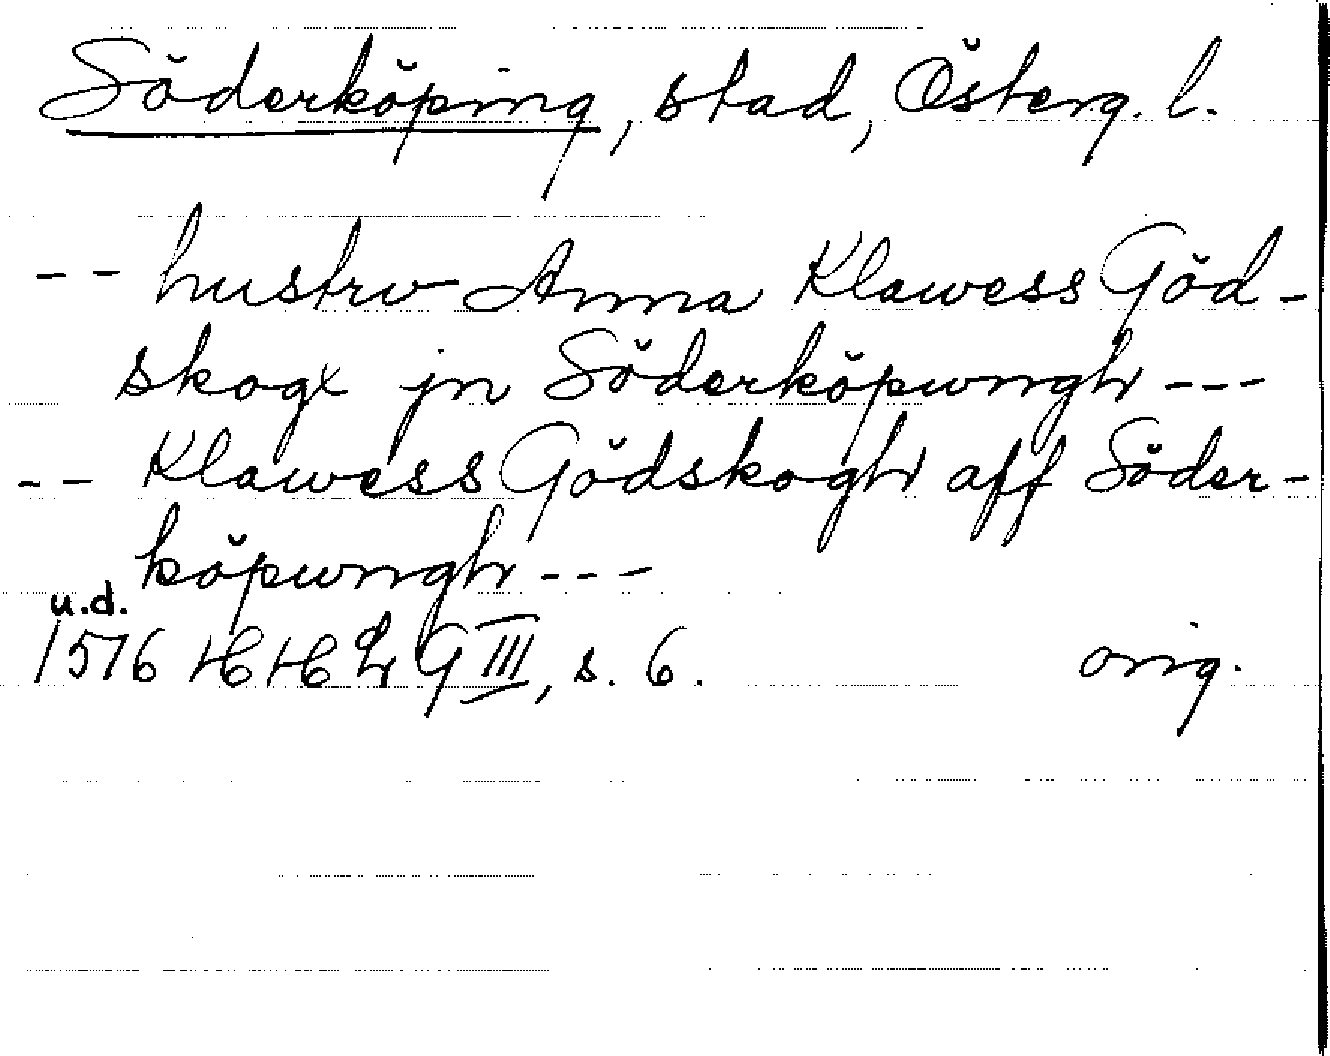 Söderköping, stad, Österg. l.
-- hustrv Anna Klawess Göd-
skogx jn Söderköpwngh ---
-- Klawess Gödskogh aff Söder-
köpwngh ---
u.d.
1576 HH 2 G III, s. 6. orig.